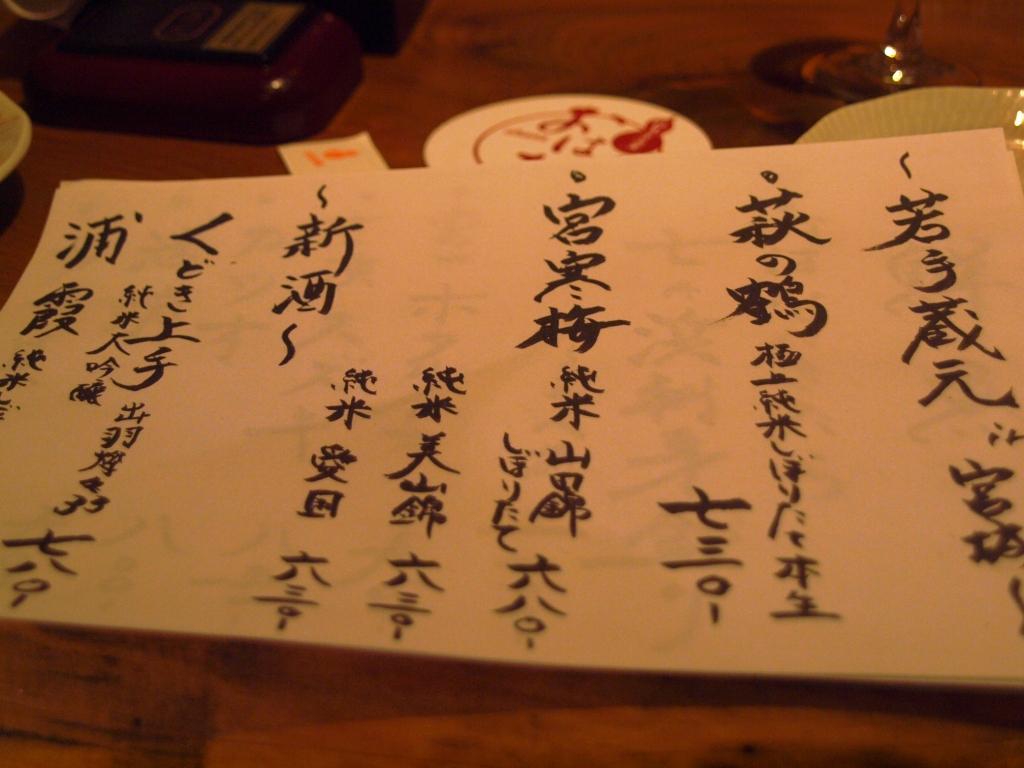 〜若手蔵元 in 宮城〜
・萩の鶴 極上純米しぼりたて本生
七三〇-
・宮寒梅 純米 山田錦
しぼりたて 六八〇-
純米 美山錦 六三〇-
純米 愛国 六三〇-
〜新酒〜
くどき上手 出羽燦々33
純米大吟醸 七八〇-
浦霞 純米